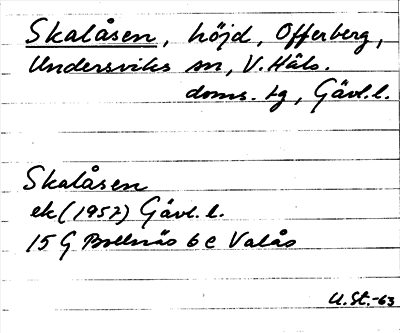 Skalåsen, höjd, Offerberg,
Undersviks sn, V. Häls.
doms. tg, Gävl. l.
Skalåsen
ek (1957) Gävl. l.
15 G Bollnäs 6 c Valås
U. St. -63